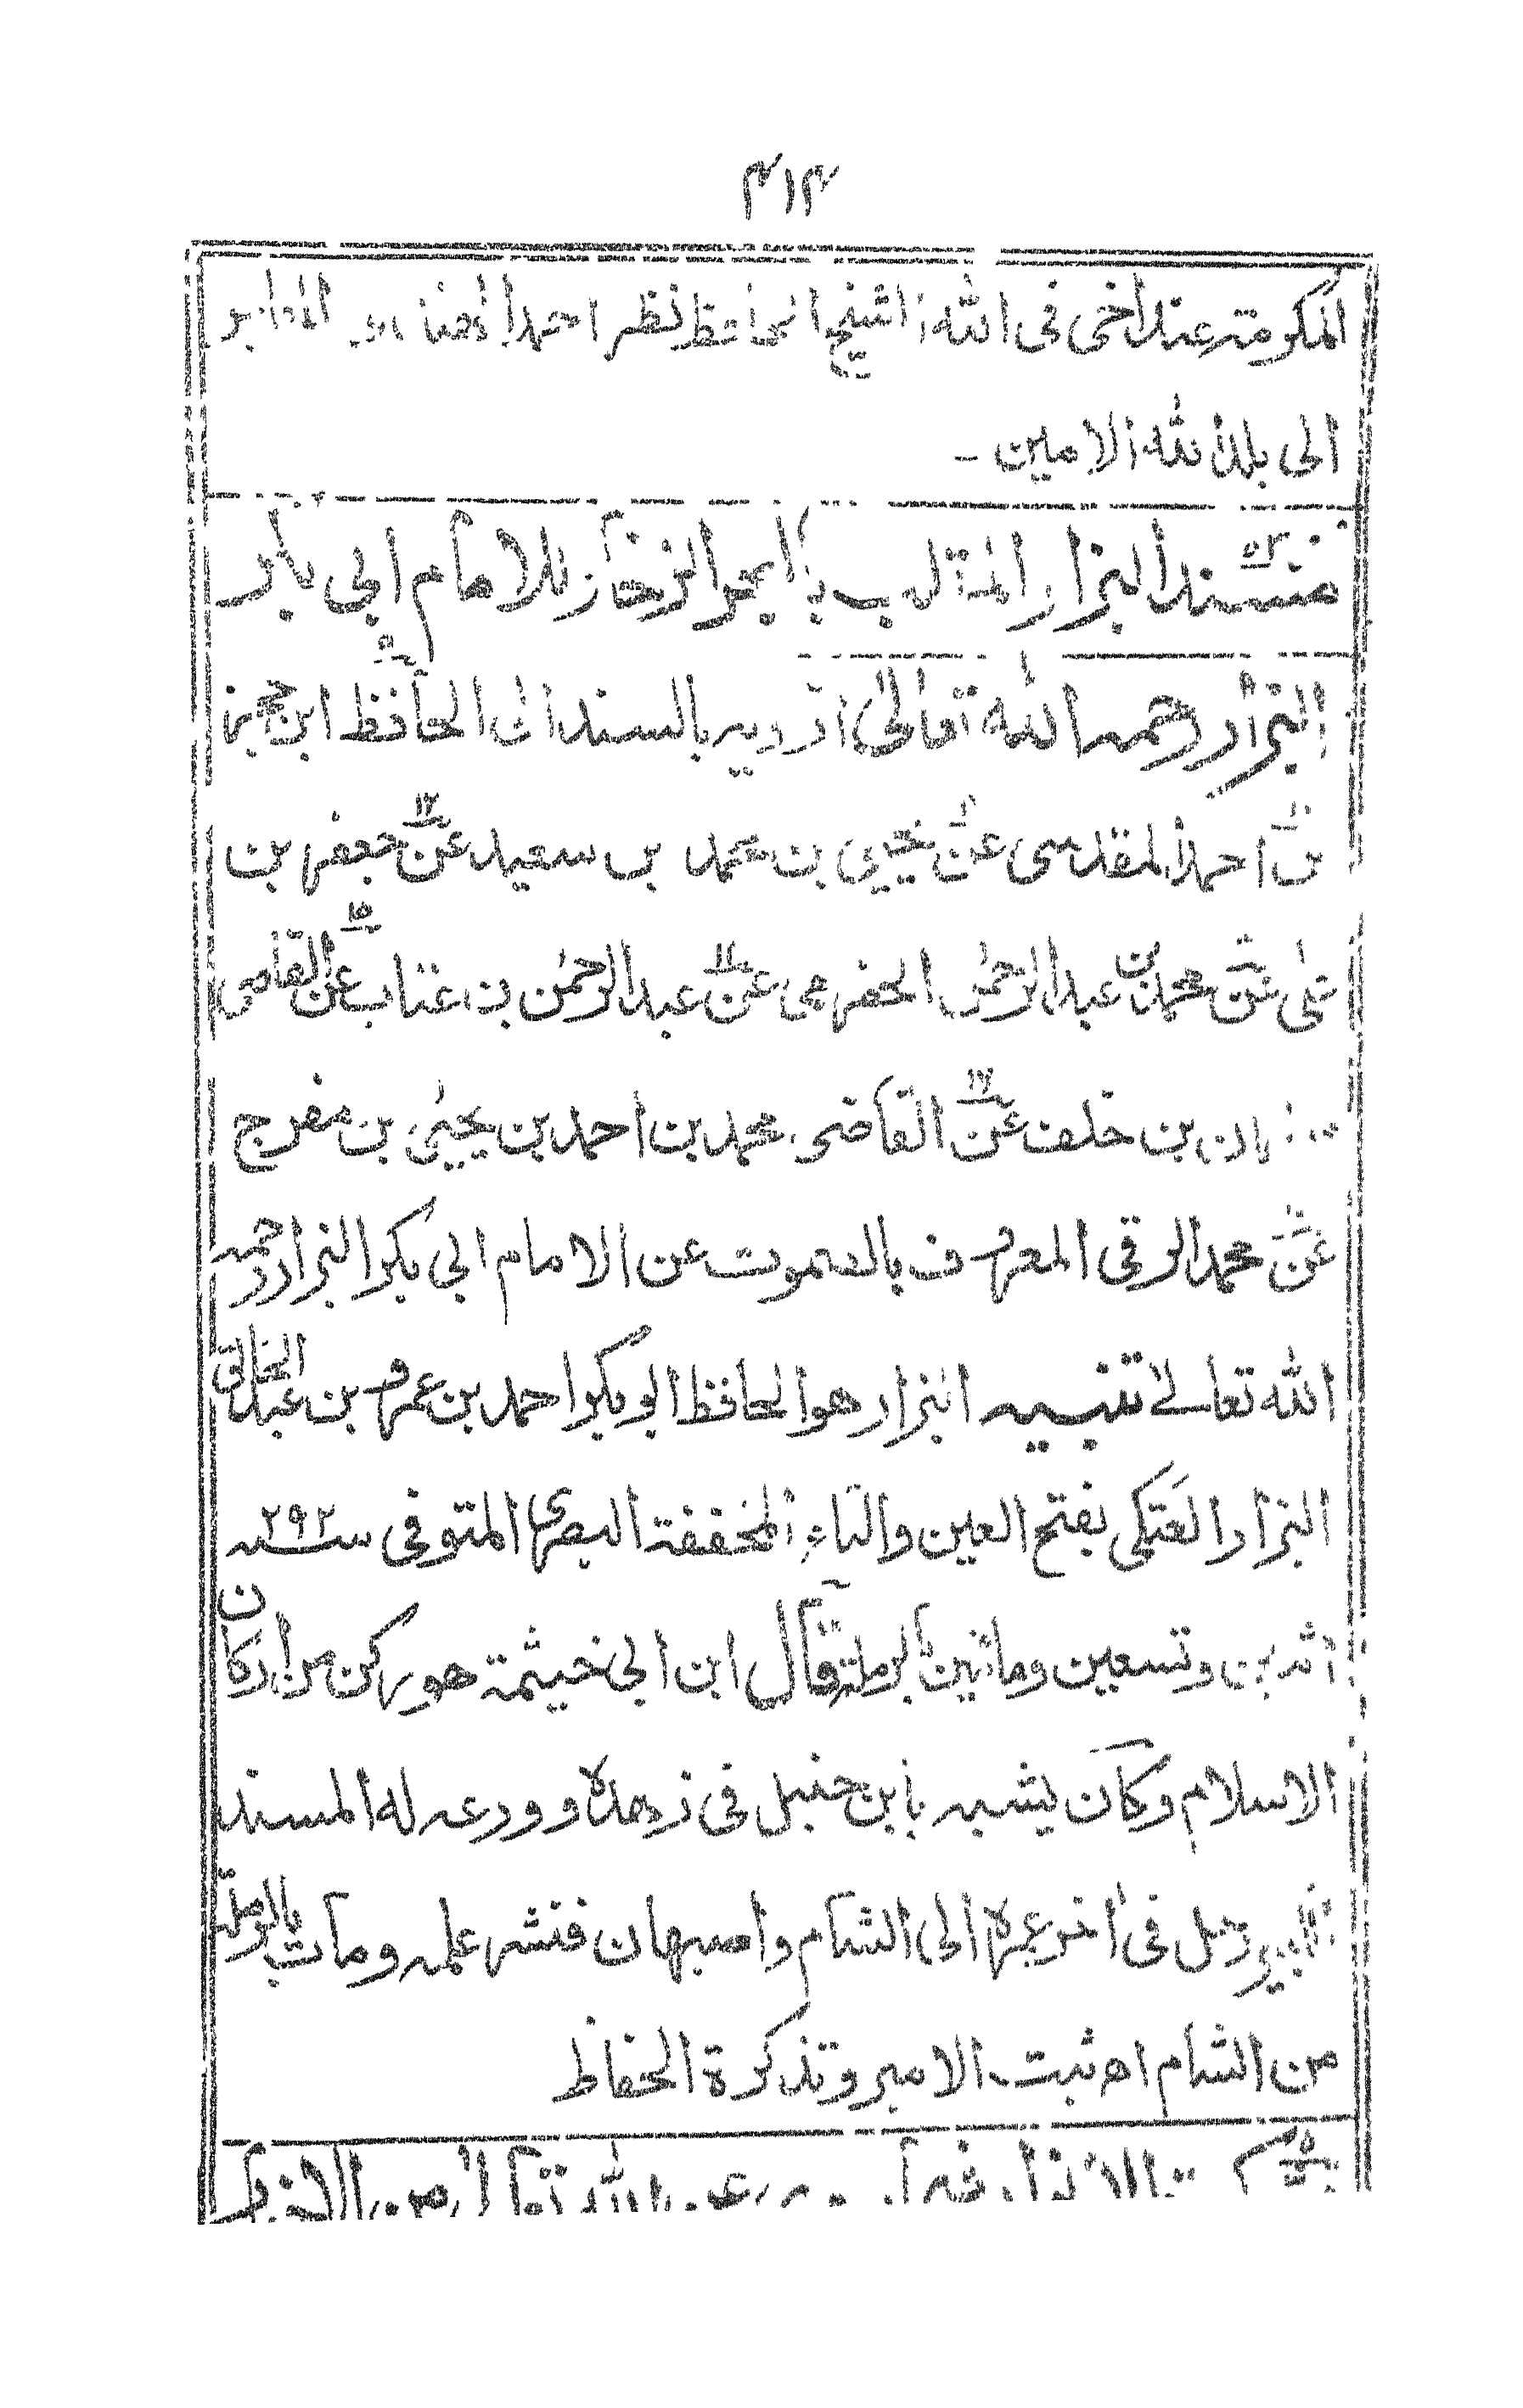 ٤١٤
المكرمة عند اخى فى الله الشيخ الحافظ نظر احمد
الى بلد الله الامين -
مسند البزار الملقب بالبحر الزخار للامام ابى بكر
البزار رحمه الله تعالى ارويه بالسند الى الحافظ ابن حجر
احمد المقدسى عن يحيى بن محمد بن سعيد عن ١٣ جعفر بن
على عن محمد بن عبد الرحمن الحضرمى عن عبد الرحمن بن عتاب عن ١٥ القاضى
بن خلف عن ١٦ القاضى محمد بن احمد بن يحيى بن مفرج
عن محمد الرقى المعروف بالصموت عن الامام ابى بكر البزار رحمه
الله تعالے تنبيه البزار هو الحافظ ابو بكر احمد بن عمرو بن عبد الخالق
البزار العتكى بفتح العين والتاء المخففة البصرى المتوفى سنه ٢٩٢
اثنين وتسعين ومائتين بالرملة قال ابن ابى خيثمة هو ركن من اركان
الاسلام وكان يشبه بابن حنبل فى زهده وورعه له المسند
الكبير رحل فى اخر عمره الى الشام واصبهان فنشر علمه ومات بالرملة
من الشام اھ ثبت الامير وتذكرة الحفاظ